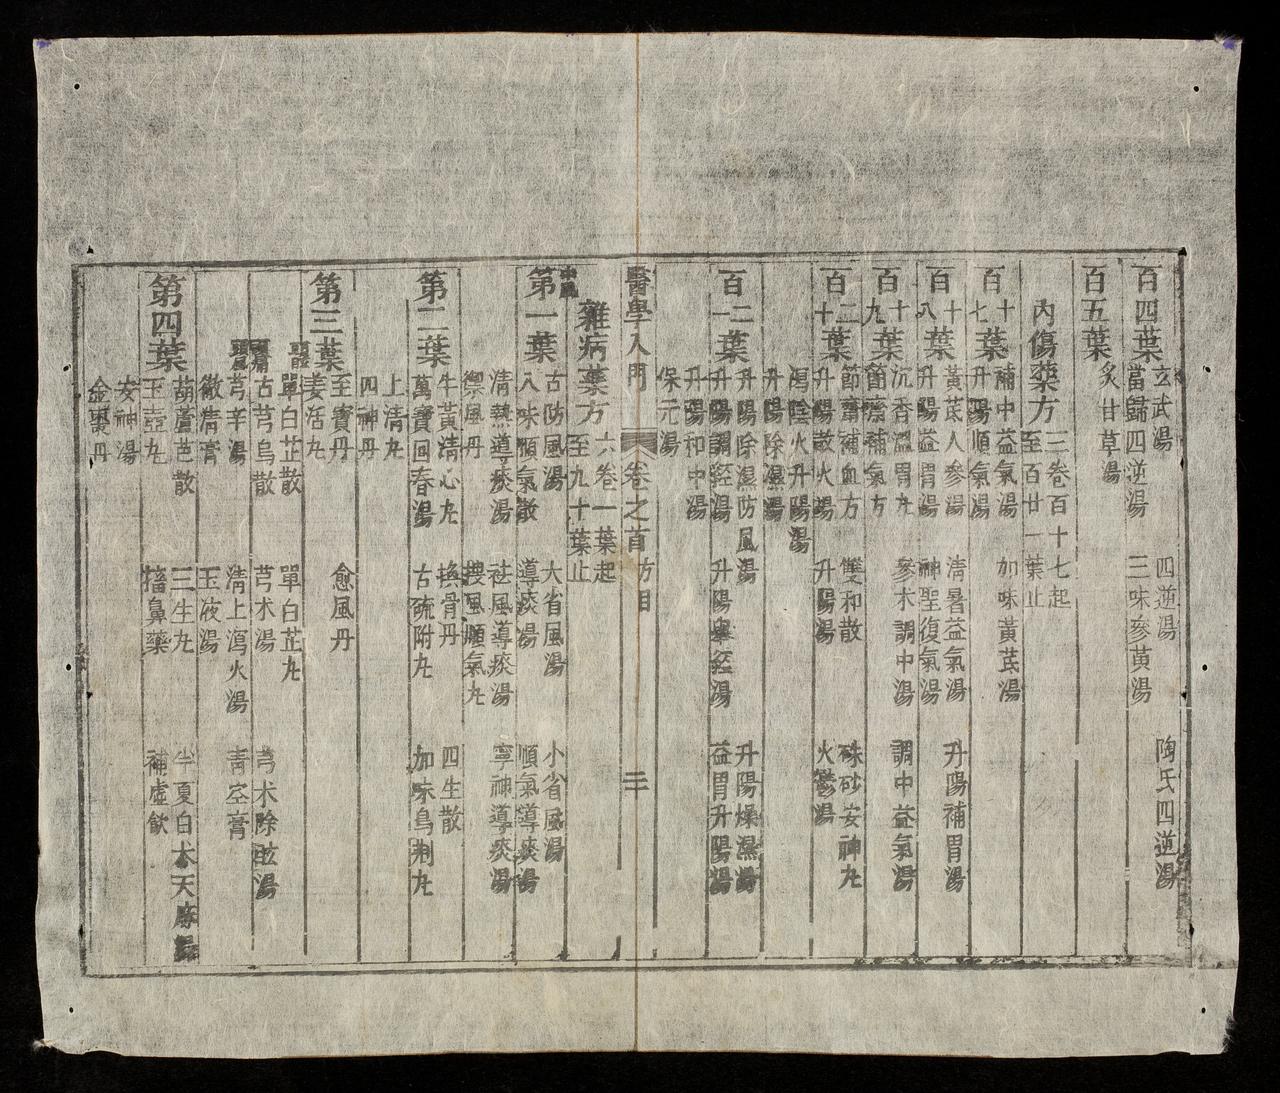 百四葉 玄武湯 四逆湯 陶氏四逆湯
當歸四逆湯 三味參萸湯
百五葉 炙甘草湯
內傷藥方 三卷百十七起
至百廿一葉止
百十七葉 補中益氣湯 加味黃芪湯
升陽順氣湯
百十八葉 黃芪人參湯 清暑益氣湯 升陽補胃湯
升陽益胃湯 神聖復氣湯
百十九葉 沉香溫胃丸 參朮調中湯 調中益氣湯
補氣方
百二十葉 節齋補血方 雙和散 硃砂安神丸
升陽散火湯 升陽湯 火鬱湯
瀉陰火升陽湯
升陽除濕湯
百二一葉 升陽除濕防風湯 升陽燥濕湯
升陽調經湯 升陽舉經湯 益胃升陽湯
升陽和中湯
保元湯
醫學入門 卷之首 方目 二
雜病藥方 六卷一葉起
至九十葉止
中風
第一葉 古防風湯 大省風湯 小省風湯
八味順氣散 導痰湯 順氣導痰湯
清熱導痰湯 祛風導痰湯 寧神導痰湯
禦風丹 搜風順氣丸
第二葉 牛黃清心丸 換骨丹 四生散
萬寶回春湯 古硫附丸 加味烏荆丸
上清丸
四神丹
第三葉 至寶丹 愈風丹
姜活丸
單白芷散 單白芷丸
古芎烏散 芎朮湯 芎朮除眩湯
芎辛湯 清上瀉火湯 青空膏
徹清膏 玉液湯
第四葉 葫蘆芭散 三生丸 半夏白朮天麻湯
玉壺丸 搐鼻藥 補虛飲
安神湯
金棗丹